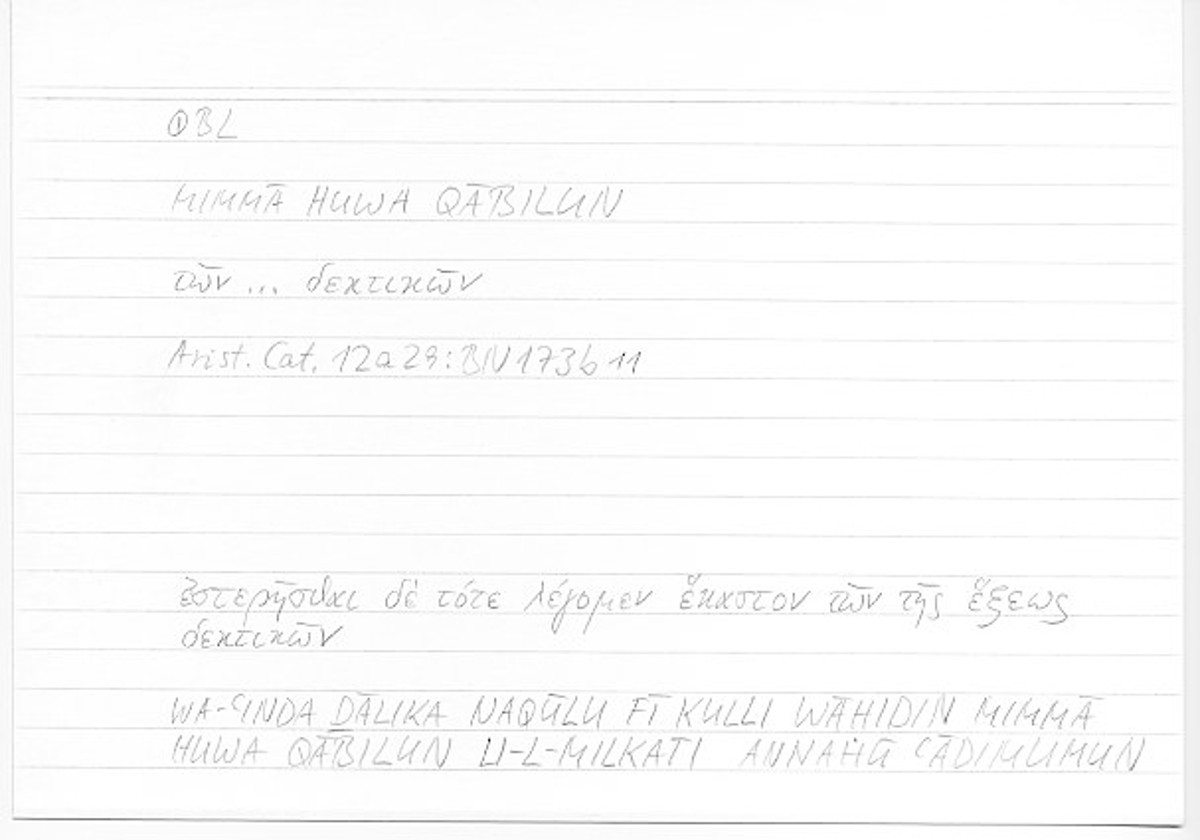 ①BL
MIMMĀ HUWA QĀBILUN
τῶν ... δεκτικῶν
Arist. Cat. 12a29: BN173b11
ἐστερῆσθαι δὲ τότε λέγομεν ἕκαστον τῶν τῆς ἕξεως
δεκτικῶν
WA-ʿINDA ḎĀLIKA NAQŪLU FĪ KULLI WĀḤIDIN MIMMĀ
HUWA QĀBILUN LI-L-MILKATI ANNAHŪ ʿĀDIMUMUN